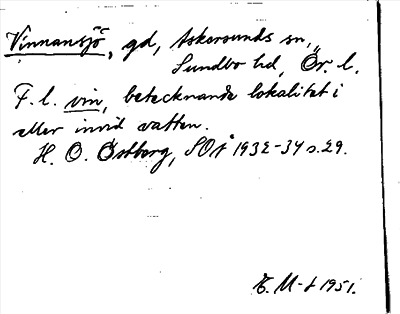 Vinnansjö, gd, Askersunds sn,
Sundbo hd, Ör. l.
F. l. vin, betecknande lokalitet i
eller invid vatten.
H. O. Östberg, SOÅ 1932-34 s. 29.
E. M-t 1951.